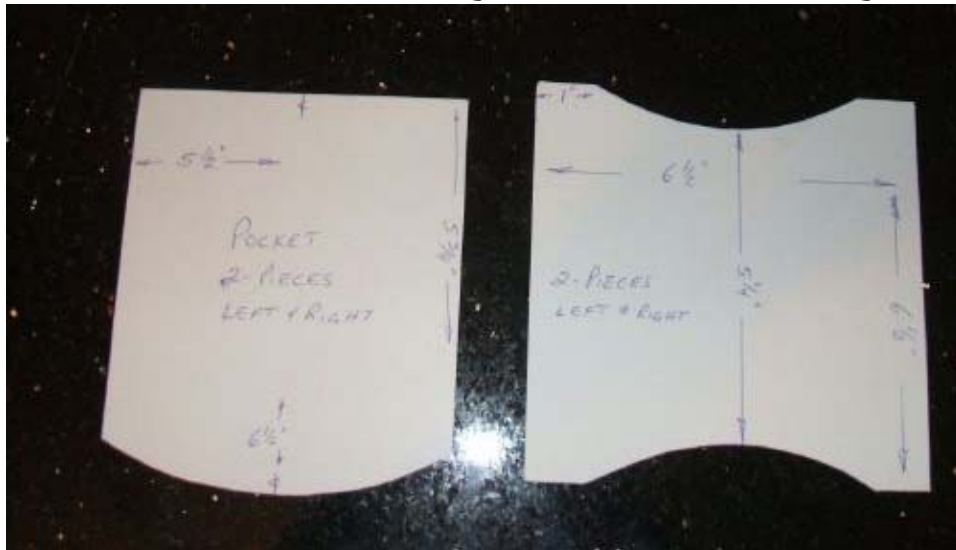 5 1/2"
POCKET
2-PIECES
LEFT & RIGHT
5 3/4"
6 1/2"
1"
6 1/2"
2-PIECES
LEFT & RIGHT
5 1/4"